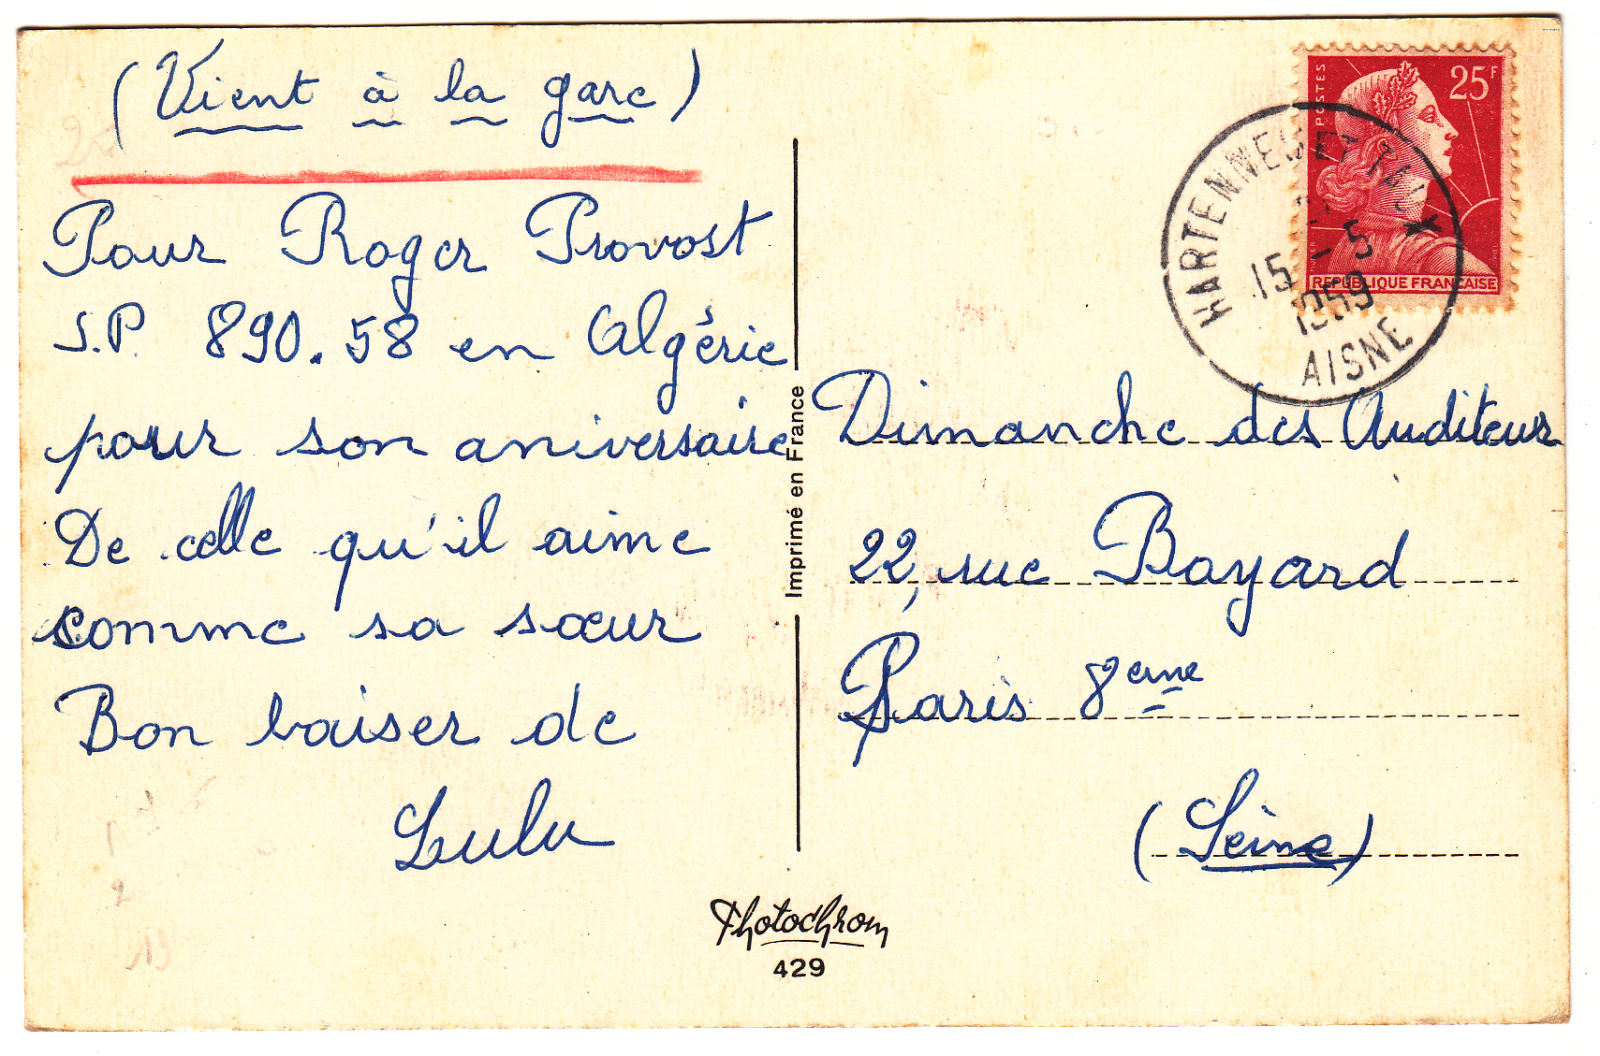 (Vient à la gare)
Pour Roger Provost
S.P. 890.58 en Algérie
pour son aniversaire
De celle qu'il aime
comme sa sœur
Bon baiser de
Lulu
Imprimé en France
Photochrom
429
POSTES
25F
REPUBLIQUE FRANÇAISE
HARTENNES ET TAUX
15 - 5
1959
AISNE
Dimanche des Auditeurs
22, rue Bayard
Paris 8eme
(Seine)